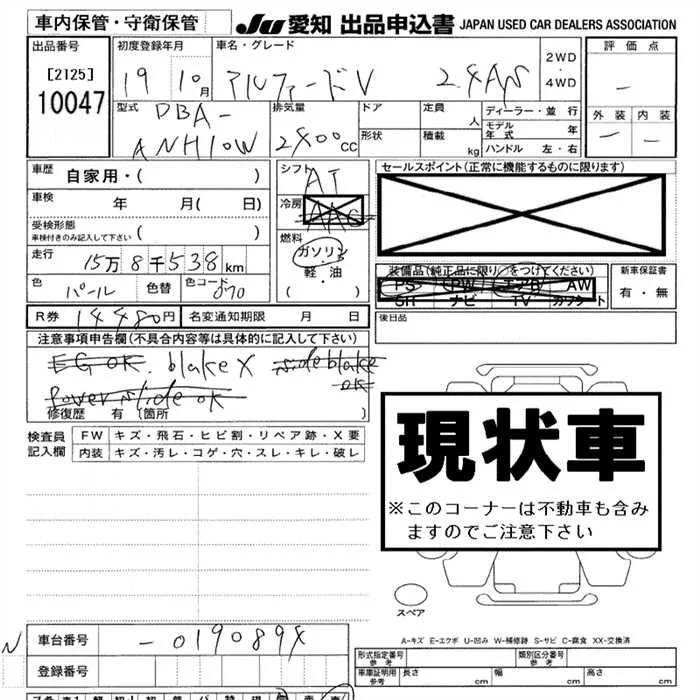 車内保管・守衛保管 JU 愛知 出品申込書 JAPAN USED CAR DEALERS ASSOCIATION
出品番号 初度登録年月 車名・グレード 2WD・4WD 評価点
[2125] 19 10月 アルファードV 2.4AS
10047 ー
型式 DBA- 排気量 ドア 定員 人 ディーラー・並行 外装 内装
ANH10W 2400cc 形状 積載 kg モデル年式 年 ー ー
ハンドル 左・右
車歴 自家用・( ) シフト AT セールスポイント(正常に機能するものに限ります)
車検 年 月( 日) 冷房 AAC
受検形態
車検付きのみ記入して下さい ( ) 燃料
走行 15万8千538km ガソリン
色 パール 色替 色コード 070 軽・油 ( )
装備品(純正品に限り○をつけてください) 新車保証書
PS PW エアB AW 有・無
SR ナビ TV カワシート
R券 14480円 名変通知期限 月 日 後日品
注意事項申告欄(不具合内容等は具体的に記入して下さい)
EG OK. blake X sideblake OK
Power slide ok
修復歴 有 (箇所 )
検査員記入欄 FW キズ・飛石・ヒビ割・リペア跡・X要
内装 キズ・汚レ・コゲ・穴・スレ・キレ・破レ
現状車
※このコーナーは不動車も含み
ますのでご注意下さい
スペア
A-キズ E-エクボ U-凹み W-補修跡 S-サビ C-腐食 XX-交換済
N 車台番号 -0190894
登録番号
形式指定番号 参考 類別区分番号 参考
車庫証明用 参考 長さ cm 幅 cm 高さ cm